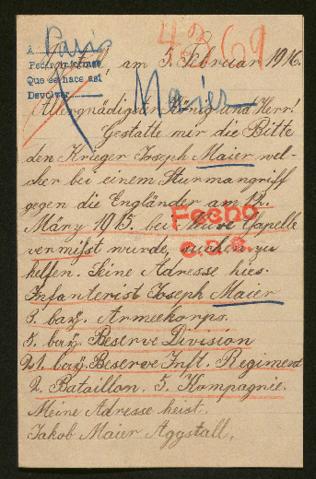 4269
A Paris
Pedir informes
Que se hace así
Devolver
am 5. Februar 1916.
Maier
Allergnädigster König und Herr!
Gestatte mir die Bitte
den Krieger Joseph Maier wel-
cher bei einem Sturmangriff
gegen die Engländer am 12.
März 1915. bei Neuve Capelle
vermißt wurde, suchen zu
helfen. Seine Adresse hies.
Infanterist Joseph Maier
bay. Armeekorps.
bay. Reserve Division
21. bay. Reserve Inft. Regiment
2. Bataillon. 5. Kompagnie.
Meine Adresse heist.
Jakob Maier Aggstall,
Fecho